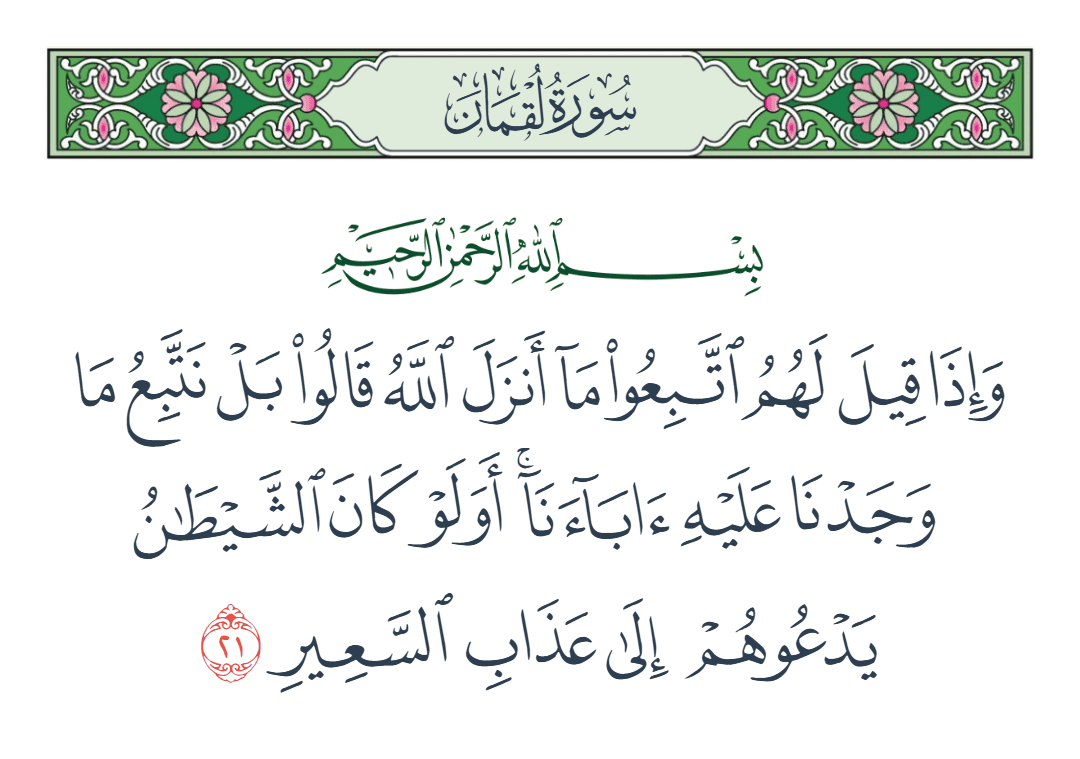 سُورَةُ لُقْمَان
بِسْمِ ٱللَّهِ ٱلرَّحْمَٰنِ ٱلرَّحِيمِ
وَإِذَا قِيلَ لَهُمُ ٱتَّبِعُوا۟ مَآ أَنزَلَ ٱللَّهُ قَالُوا۟ بَلْ نَتَّبِعُ مَا
وَجَدْنَا عَلَيْهِ ءَابَآءَنَآ ۚ أَوَلَوْ كَانَ ٱلشَّيْطَٰنُ
يَدْعُوهُمْ إِلَىٰ عَذَابِ ٱلسَّعِيرِ ٢١